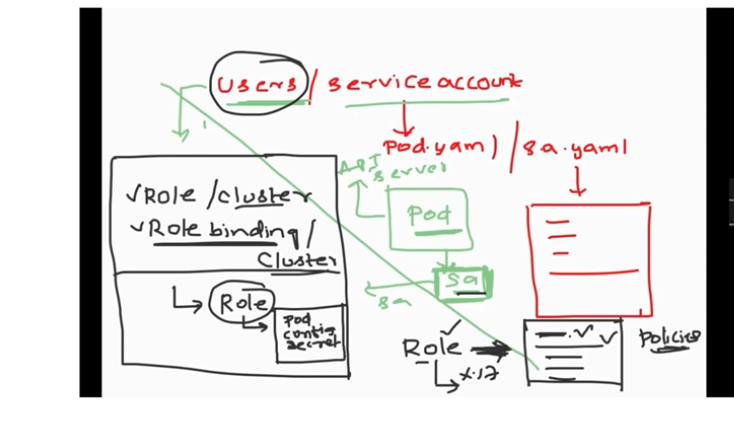 Users / service account
Pod.yaml / sa.yaml
API
server
✓Role / cluster
✓Role binding /
Cluster
Pod
sa
sa
Role
Pod
config
secret
Role
Policies